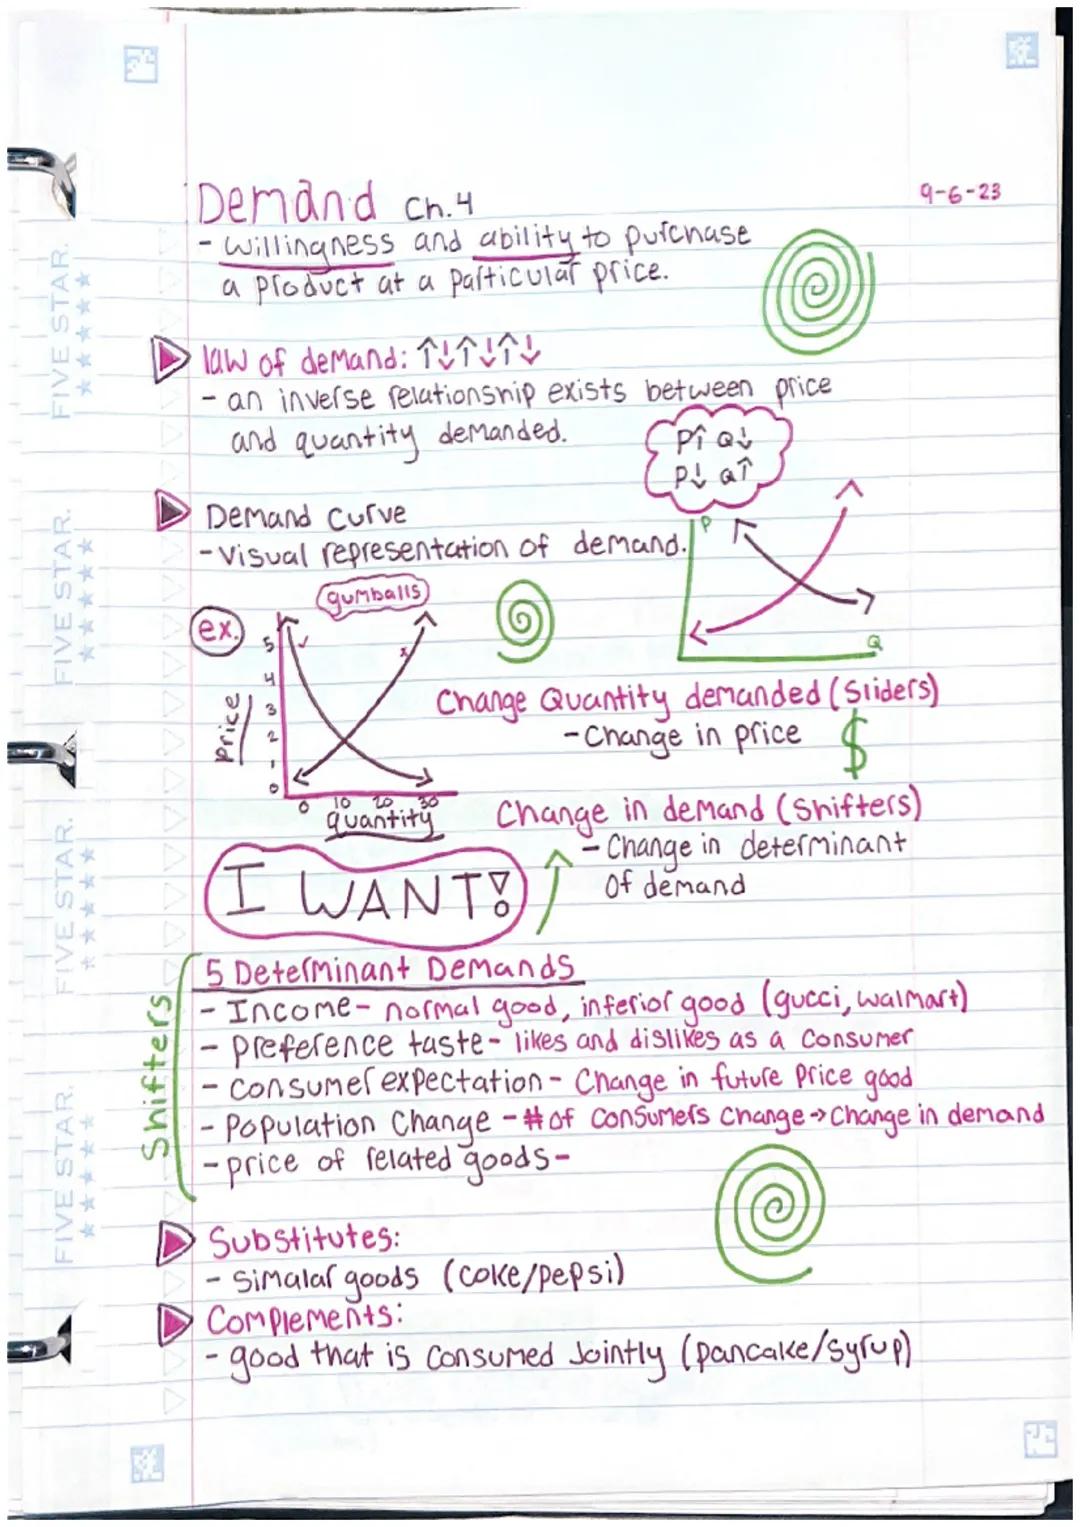 Demand Ch.4
9-6-23
- willingness and ability to purchase
a product at a particular price.
law of demand: ↑↓↑↓↑↓
- an inverse relationship exists between price
and quantity demanded.
P↑ Q↓
P↓ Q↑
Demand Curve
- Visual representation of demand.
P
Q
gumballs
ex.
5
4
3
2
1
0
price
0 10 20 30
quantity
Change Quantity demanded (Sliders)
- Change in price $
Change in demand (Shifters)
- Change in determinant
Of demand
I WANT!
5 Determinant Demands
Shifters
- Income - normal good, inferior good (gucci, walmart)
- preference taste - likes and dislikes as a Consumer
- consumer expectation - Change in future Price good
- Population Change - # of Consumers Change → Change in demand
- price of related goods -
Substitutes:
- Simalar goods (coke/pepsi)
Complements:
- good that is Consumed Jointly (pancake/syrup)
FIVE STAR.
FIVE STAR.
FIVE STAR.
FIVE STAR.